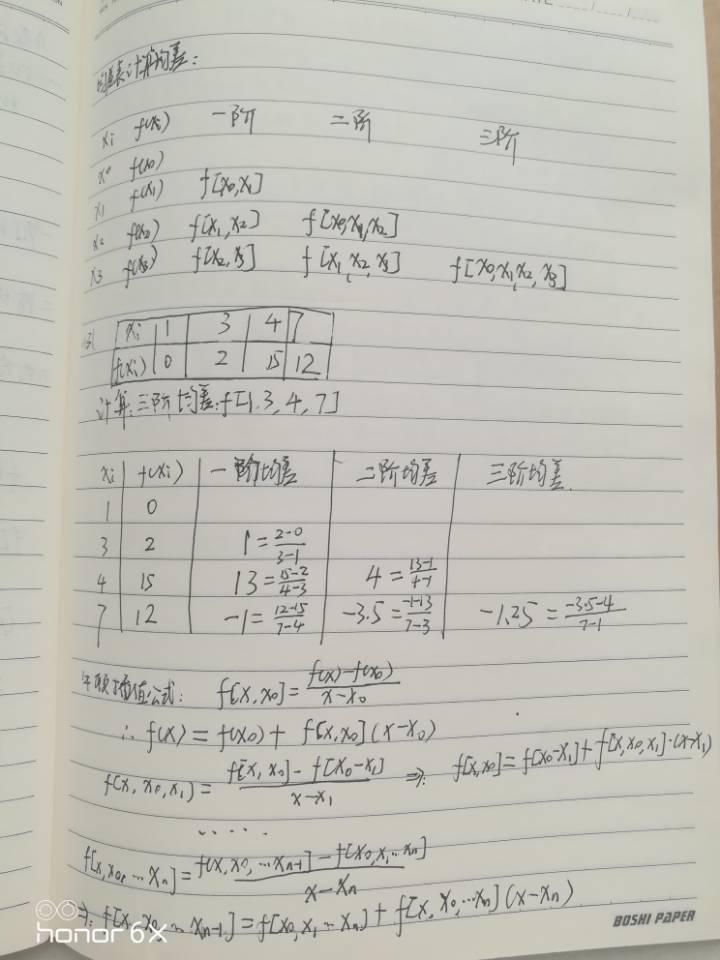 均差表计算均差:
xi f(xi) 一阶 二阶 三阶
x0 f(x0)
x1 f(x1) f[x0,x1]
x2 f(x2) f[x1,x2] f[x0,x1,x2]
x3 f(x3) f[x2,x3] f[x1,x2,x3] f[x0,x1,x2,x3]
例 xi 1 3 4 7
f(xi) 0 2 15 12
计算:三阶均差:f[1.3,4,7]
xi f(xi) 一阶均差 二阶均差 三阶均差
1 0
3 2 1=(2-0)/(3-1)
4 15 13=(15-2)/(4-3) 4=(13-1)/(4-1)
7 12 -1=(12-15)/(7-4) -3.5=(-1-13)/(7-3) -1.25=(-3.5-4)/(7-1)
牛顿插值公式: f[x,x0]=(f(x)-f(x0))/(x-x0)
∴ f(x)=f(x0)+f[x,x0](x-x0)
f(x,x0,x1)=(f[x,x0]-f[x0-x1])/(x-x1) ⇒: f[x,x0]=f[x0-x1]+f[x,x0,x1]·(x-x1)
......
f[x,x0,...xn]=(f(x,x0,...xn-1]-f[x0,x1...xn])/(x-xn)
⇒: f[x,x0...xn-1]=f[x0,x1...xn]+f[x,x0,...xn](x-xn)
BOSHI PAPER
honor 6X